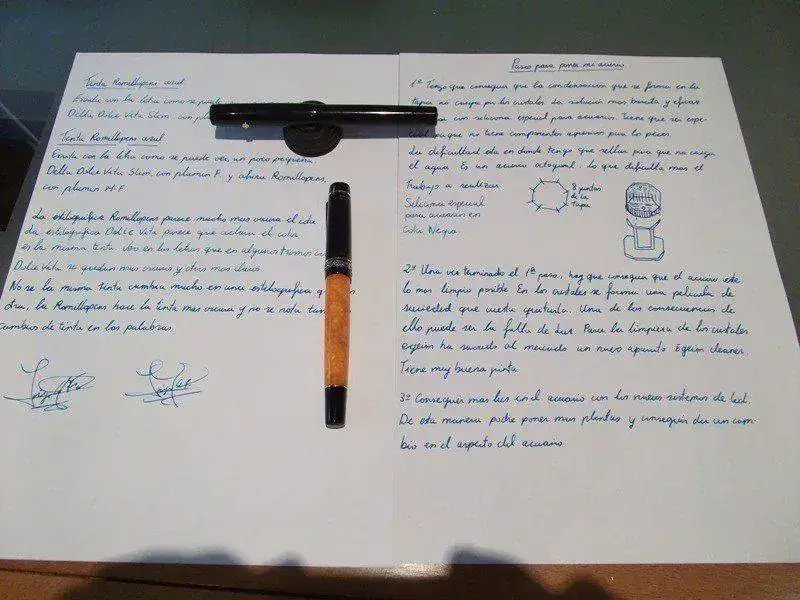 Tinta Romillopens azul
Escrita con la letra como se puede
Delta Dolce Vita Slim, con plu
Tinta Romillopens azul
Escrita con la letra como se puede ver un poco pequeña.
Delta Dolce Vita Slim, con plumin F. y ahora Romillopens,
con plumin M.F
La estilografica Romillopens parece mucho mas oscura el
la estilografica Dolce Vita parece que aclara el color
es la misma tinta veo en las letras que en algunos tramos con
Dolce Vita se quedan mas oscuro y otras mas claros
No se la misma tinta cambia mucho en una estilografica
otra, la Romillopens hace la tinta mas oscura y no se nota
cambios de tinta en las palabras
Pasos para poner mi acuario
1º Tengo que conseguir que la condensacion que se forma en la
tapa no caiga por los cristales. La solucion mas barata y eficaz
con silicona especial para acuarios. Tiene que ser espe-
que no tiene componentes agresivos para los peces.
La dificultad esta en donde tengo que sellar para que no caiga
el agua. Es un acuario octogonal, lo que dificulta mas el
trabajo a realizar
8 puntos
de la
tapa
Silicona especial
para acuarios en
color Negro.
2º Una vez terminado el 1º paso, hay que conseguir que el acuario este
lo mas limpio posible. En los cristales se forma una pelicula de
suciedad que cuesta quitarla. Una de las consecuencias de
ello puede ser la falta de luz. Para la limpieza de los cristales
eheim ha sacado al mercado un nuevo aparato Eheim cleaner.
Tiene muy buena pinta
3º Conseguir mas luz en el acuario con los nuevos sistemas de led.
De esta manera podre poner mas plantas y conseguir dar un cam-
bio en el aspecto del acuario